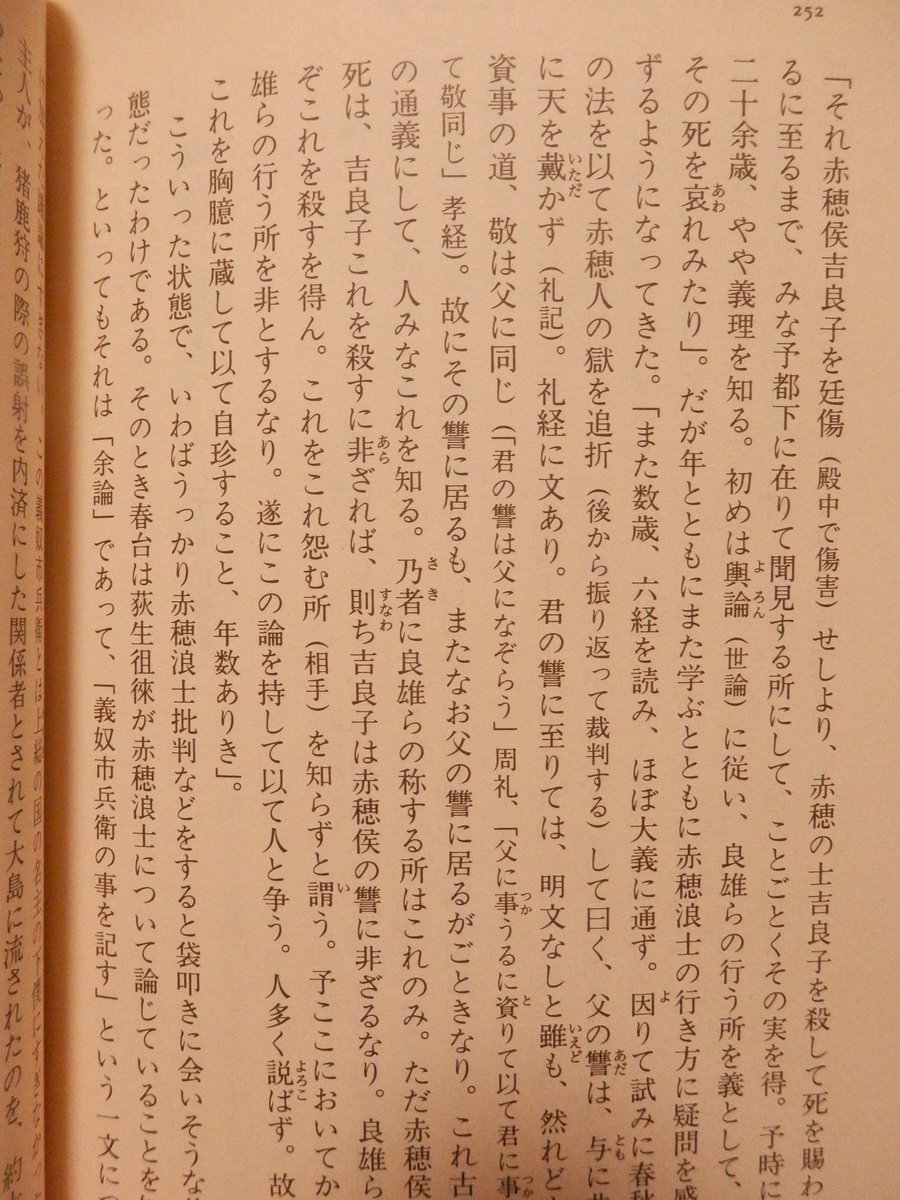 252
「それ赤穂侯吉良子を廷傷（殿中で傷害）せしより、赤穂の士吉良子を殺して死を賜わ
るに至るまで、みな予都下に在りて聞見する所にして、ことごとくその実を得。予時に
二十余歳、やや義理を知る。初めは輿論（世論）に従い、良雄らの行う所を義として、
その死を哀れみたり」。だが年とともにまた学ぶとともに赤穂浪士の行き方に疑問を感
ずるようになってきた。「また数歳、六経を読み、ほぼ大義に通ず。因りて試みに春秋
の法を以て赤穂人の獄を追折（後から振り返って裁判する）して曰く、父の讐は、与に共
に天を戴かず（礼記）。礼経に文あり。君の讐に至りては、明文なしと雖も、然れど
資事の道、敬は父に同じ（「君の讐は父になぞらう」周礼、「父に事うるに資りて以て君に事
て敬同じ」孝経）。故にその讐に居るも、またなお父の讐に居るがごときなり。これ古
の通義にして、人みなこれを知る。乃者に良雄らの称する所はこれのみ。ただ赤穂侯
死は、吉良子これを殺すに非ざれば、則ち吉良子は赤穂侯の讐に非ざるなり。良雄ら
ぞこれを殺すを得ん。これをこれ怨む所（相手）を知らずと謂う。予ここにおいてか
雄らの行う所を非とするなり。遂にこの論を持して以て人と争う。人多く説ばず。故
これを胸臆に蔵して以て自珍すること、年数ありき」。
こういった状態で、いわばうっかり赤穂浪士批判などをすると袋叩きに会いそうな
態だったわけである。そのとき春台は荻生徂徠が赤穂浪士について論じていることを
った。といってもそれは「余論」であって、「義奴市兵衛の事を記す」という一文に
この義奴市兵衛とは上総の国の名主の下僕に
主人が、猪鹿狩の際の誤射を内済にした関係者とされて大島に流されたのを、